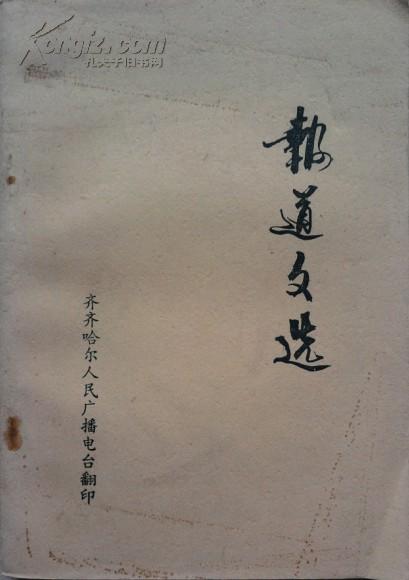 Kongfz.com
孔夫子旧书网
報道文选
齐齐哈尔人民广播电台翻印